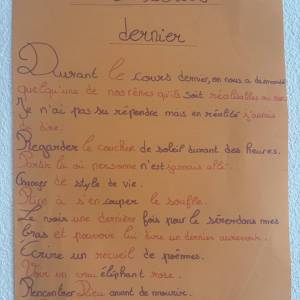 dernier
Durant le cours dernier, on nous a demandé
quelqu'une de nos rêves qu'ils soit réalisables ou non
Je n'ai pas su répondre mais en réalité j'aurais
dû dire:
Regarder le coucher de soleil durant des heures.
Partir là où personne n'est jamais allé.
Changer de style de vie.
Rire à s'en couper le souffle.
Le voir une dernière fois pour le serer dans mes
bras et pouvoir lui dire un dernier aurevoir.
Écrire un recueil de poèmes.
Voir un vrai éléphant rose.
Rencontrer Dieu avant de mourir.